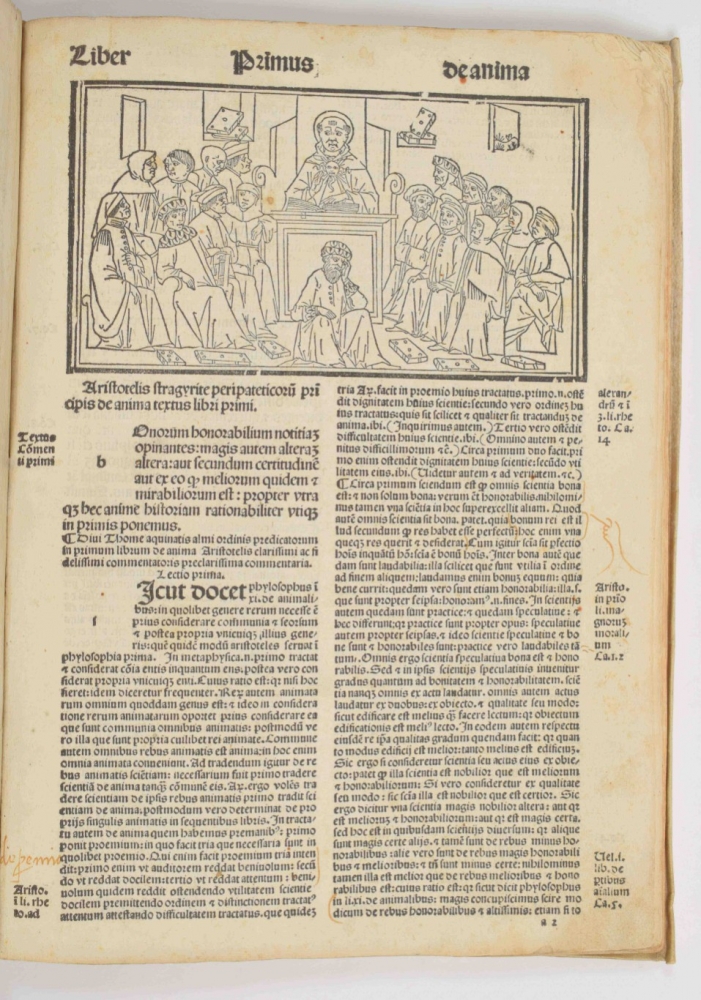 Liber Primus de anima
Aristotelis stragyrite peripateticorū prī
cipis de anima textus libri primi.
Textus
Cōmen
ti primi
b
Onorum honorabilium notitiaʒ
opinantes: magis autem alteraʒ
altera: aut secundum certitudinē
aut ex eo ꝙ meliorum quidem ⁊
mirabiliorum est: propter vtra
qʒ hec anime historiam rationabiliter vtiqʒ
in primis ponemus.
¶ Diui Thome aquinatis almi ordinis predicatorum
in primum librum de anima Aristotelis clarissimi ac fi
delissimi commentatoris preclarissima commentaria.
Lectio prima.
s
Icut docet phylosophus ī
xi. de animali-
bus: in quolibet genere rerum necesse ē
prius considerare communia ⁊ seorsum
⁊ postea propria vnicuiqʒ illius gene-
ris: quē quidē modū aristoteles seruat ī
phylosophia prima. In metaphysica. n. primo tractat
⁊ considerat cōia entis inquantum ens. postea vero con
siderat propria vnicuiqʒ enti. Cuius ratio est: qꝛ nisi hoc
fieret: idem diceretur frequenter. Reꝝ autem animata
rum omnium quoddam genus est: ⁊ ideo in considera
tione rerum animatarum oportet prius considerare ea
que sunt communia omnibus animatis: postmodū ve
ro illa que sunt propria cuilibet rei animate. Commune
autem omnibus rebus animatis est anima: in hoc enim
omnia animata conueniunt. Ad tradendum igitur de re
bus animatis sciētiam: necessarium fuit primo tradere
scientiā de anima tanqʒ cōmunē eis. Aꝝ. ergo volēs tra
dere scientiam de ipsis rebus animatis primo tradit sci
entiam de anima. postmodum vero determinat de pro
prijs singulis animatis in sequentibus libris. In tracta-
tu autem de anima quem habemus premanibꝰ: primo
ponit proemium: in quo facit tria que necessaria sunt in
quolibet proemio. Qui enim facit proemium tria inten
dit: primo enim vt auditorem reddat beniuolum: secū
do vt reddat docilem: tertio vt reddat attentum: beni-
uolum quidem reddit ostendendo vtilitatem scientie
docilem premittendo ordinem ⁊ distinctionem tractatꝰ
attentum attestando difficultatem tractatus. que quideʒ
Aristo.
ī li. rhe
to. ad
tria Aꝝ. facit in proemio huius tractatus. primo. n. ostē
dit dignitatem huius scientie: secundo vero ordineʒ hu
ius tractatus: quis sit scilicet ⁊ qualiter sit tractanduʒ de
anima. ibi. (Inquirimus autem.) Tertio vero ostēdit
difficultatem huius scientie. ibi. (Omnino autem ⁊ pe-
nitus difficillimorum ⁊c.) Circa primum duo facit. pri
mo enim ostendit dignitatem huius scientie: secūdo vti
litatem eius. ibi. (Uidetur autem ⁊ ad veritatem. ⁊c.)
¶ Circa primum sciendum est ꝙ omnis scientia bona
est: ⁊ non solum bona: verum ēt honorabilis. nihilomi-
nus tamen vna sciētia in hoc superexcellit aliam. Quod
autē omnis scientia sit bona. patet. quia bonum rei est il
lud secundum ꝙ res habet esse perfectū: hoc enim vna
queqʒ res querit ⁊ desiderat. Cum igitur sciā sit pfectio
hoīs inquātū hō: sciā ē bonū hoīs. Inter bona autē que
dam sunt laudabilia: illa scilicet que sunt vtilia ī ordine
ad finem aliquem: laudamus enim bonuʒ equum: quia
bene currit: quedam vero sunt etiam honorabilia: illa. s.
que sunt propter seipsa: honoramꝰ. n. fines. In scientijs
autem quedam sunt practice: ⁊ quedam speculatiue: ⁊
hec differunt: qꝛ practice sunt propter opus: speculatiue
autem propter seipsas. ⁊ ideo scientie speculatiue ⁊ bo
ne sunt ⁊ honorabiles sunt: practice vero laudabiles tā
tum. Omnis ergo scientia speculatiua bona est ⁊ hono
rabilis. Sed ⁊ in ipsis scientijs speculatiuis inuenitur
gradus quantum ad bonitatem ⁊ honorabilitatem. sciē
tia nanqʒ omnis ex actu laudatur. omnis autem actus
laudatur ex duobus: ex obiecto. ⁊ qualitate seu modo:
sicut edificare est melius qʒ facere lectum: qꝛ obiectum
edificationis est meliꝰ lecto. In eodem autem respectu
eiusdē rei ipsa qualitas gradum quendam facit: qꝛ quan
to modus edificij est melior: tanto melius est edificiuʒ.
Sic ergo si consideretur scientia seu actus eius ex obie-
cto: patet ꝙ illa scientia est nobilior que est meliorum
⁊ honorabiliorum: Si vero consideretur ex qualitate
seu modo: sic sciā illa est nobilior que est certior. Sic
ergo dicitur vna scientia magis nobilior altera: aut qꝛ
est melioruʒ ⁊ honorabiliorum: aut qꝛ est magis certa.
sed hoc est in quibusdam scientijs diuersum: qꝛ alique
sunt magis certe alijs. ⁊ tamē sunt de rebus minus ho-
norabilibus: alie vero sunt de rebus magis honorabili
bus ⁊ melioribus: ⁊ tñ sunt minus certe: nihilominus
tamen illa est melior que de rebus melioribus ⁊ hono
rabilibus est: cuius ratio est: qꝛ sicut dicit phylosophus
in li. xi. de animalibus: magis concupiscimus scire mo
dicum de rebus honorabilibus ⁊ altissimis: etiam si to
a 2
alexan-
drū ⁊ ī
3. li. rhe
to. Ca.
14
Aristo.
in prio
li. ma-
gnoruʒ
morali-
um
Ca. 1. 2
Uel. 1.
lib. de
ptibus
aialium
Ca. 5.